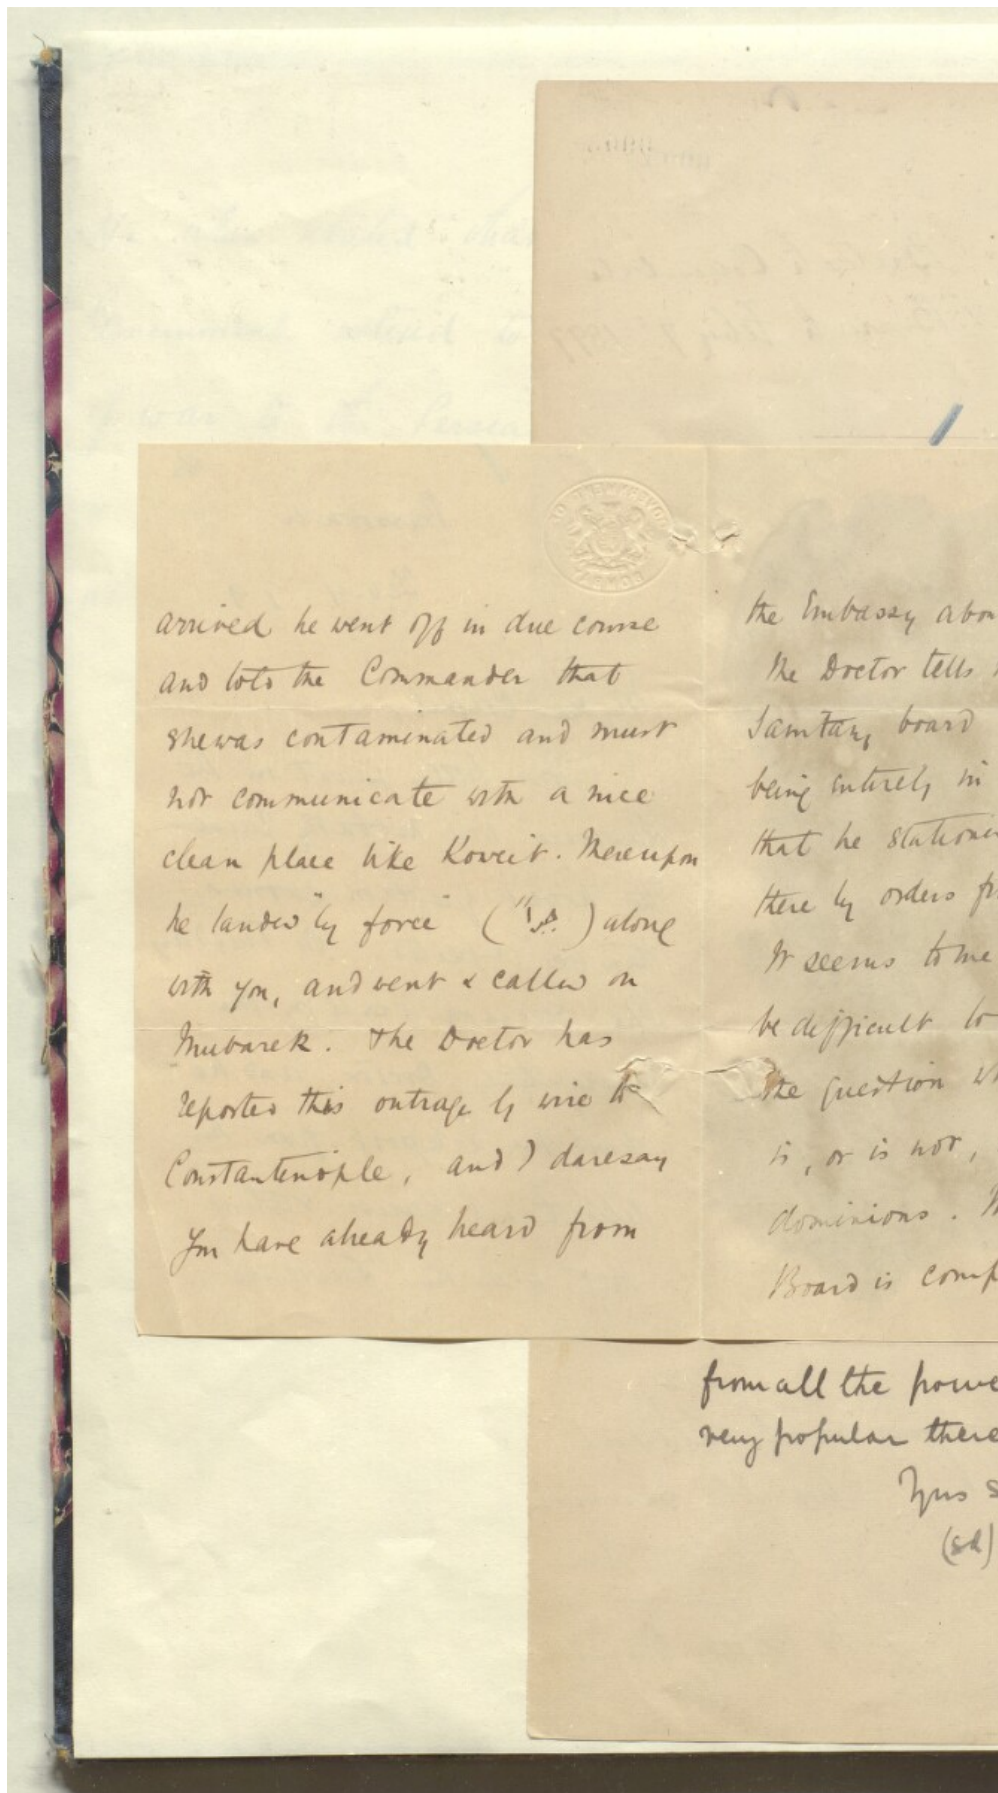 arrived he went off in due course
and told the Commander that
she was contaminated and must
not communicate with a nice
clean place like Koweit. Thereupon
he landed "by force" ( ) along
with you, and went & called on
Mubarek. The Doctor has
reported this outrage by wire to
Constantinople, and I daresay
you have already heard from
the Embassy abou
The Doctor tells
Sanitary board
being entirely in
that he stationed
there by orders fr
It seems to me
be difficult to
the question wh
is, or is not,
dominions.
Board is comp
from all the powe
very popular there
Yrs s
(sd)